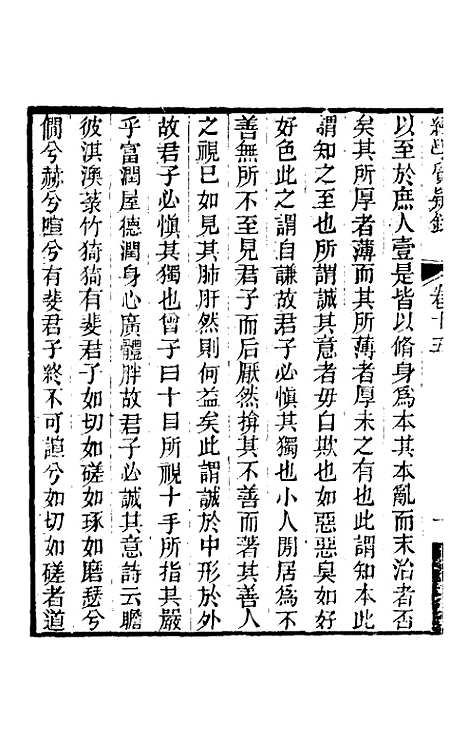 經學質疑錄
卷十五
一
以至於庶人壹是皆以脩身爲本其本亂而末治者否
矣其所厚者薄而其所薄者厚未之有也此謂知本此
謂知之至也所謂誠其意者毋自欺也如惡惡臭如好
好色此之謂自謙故君子必愼其獨也小人閒居爲不
善無所不至見君子而后厭然揜其不善而著其善人
之視已如見其肺肝然則何益矣此謂誠於中形於外
故君子必愼其獨也曾子曰十目所視十手所指其嚴
乎富潤屋德潤身心廣體胖故君子必誠其意詩云瞻
彼淇澳菉竹猗猗有斐君子如切如磋如琢如磨瑟兮
僩兮赫兮喧兮有斐君子終不可諠兮如切如磋者道